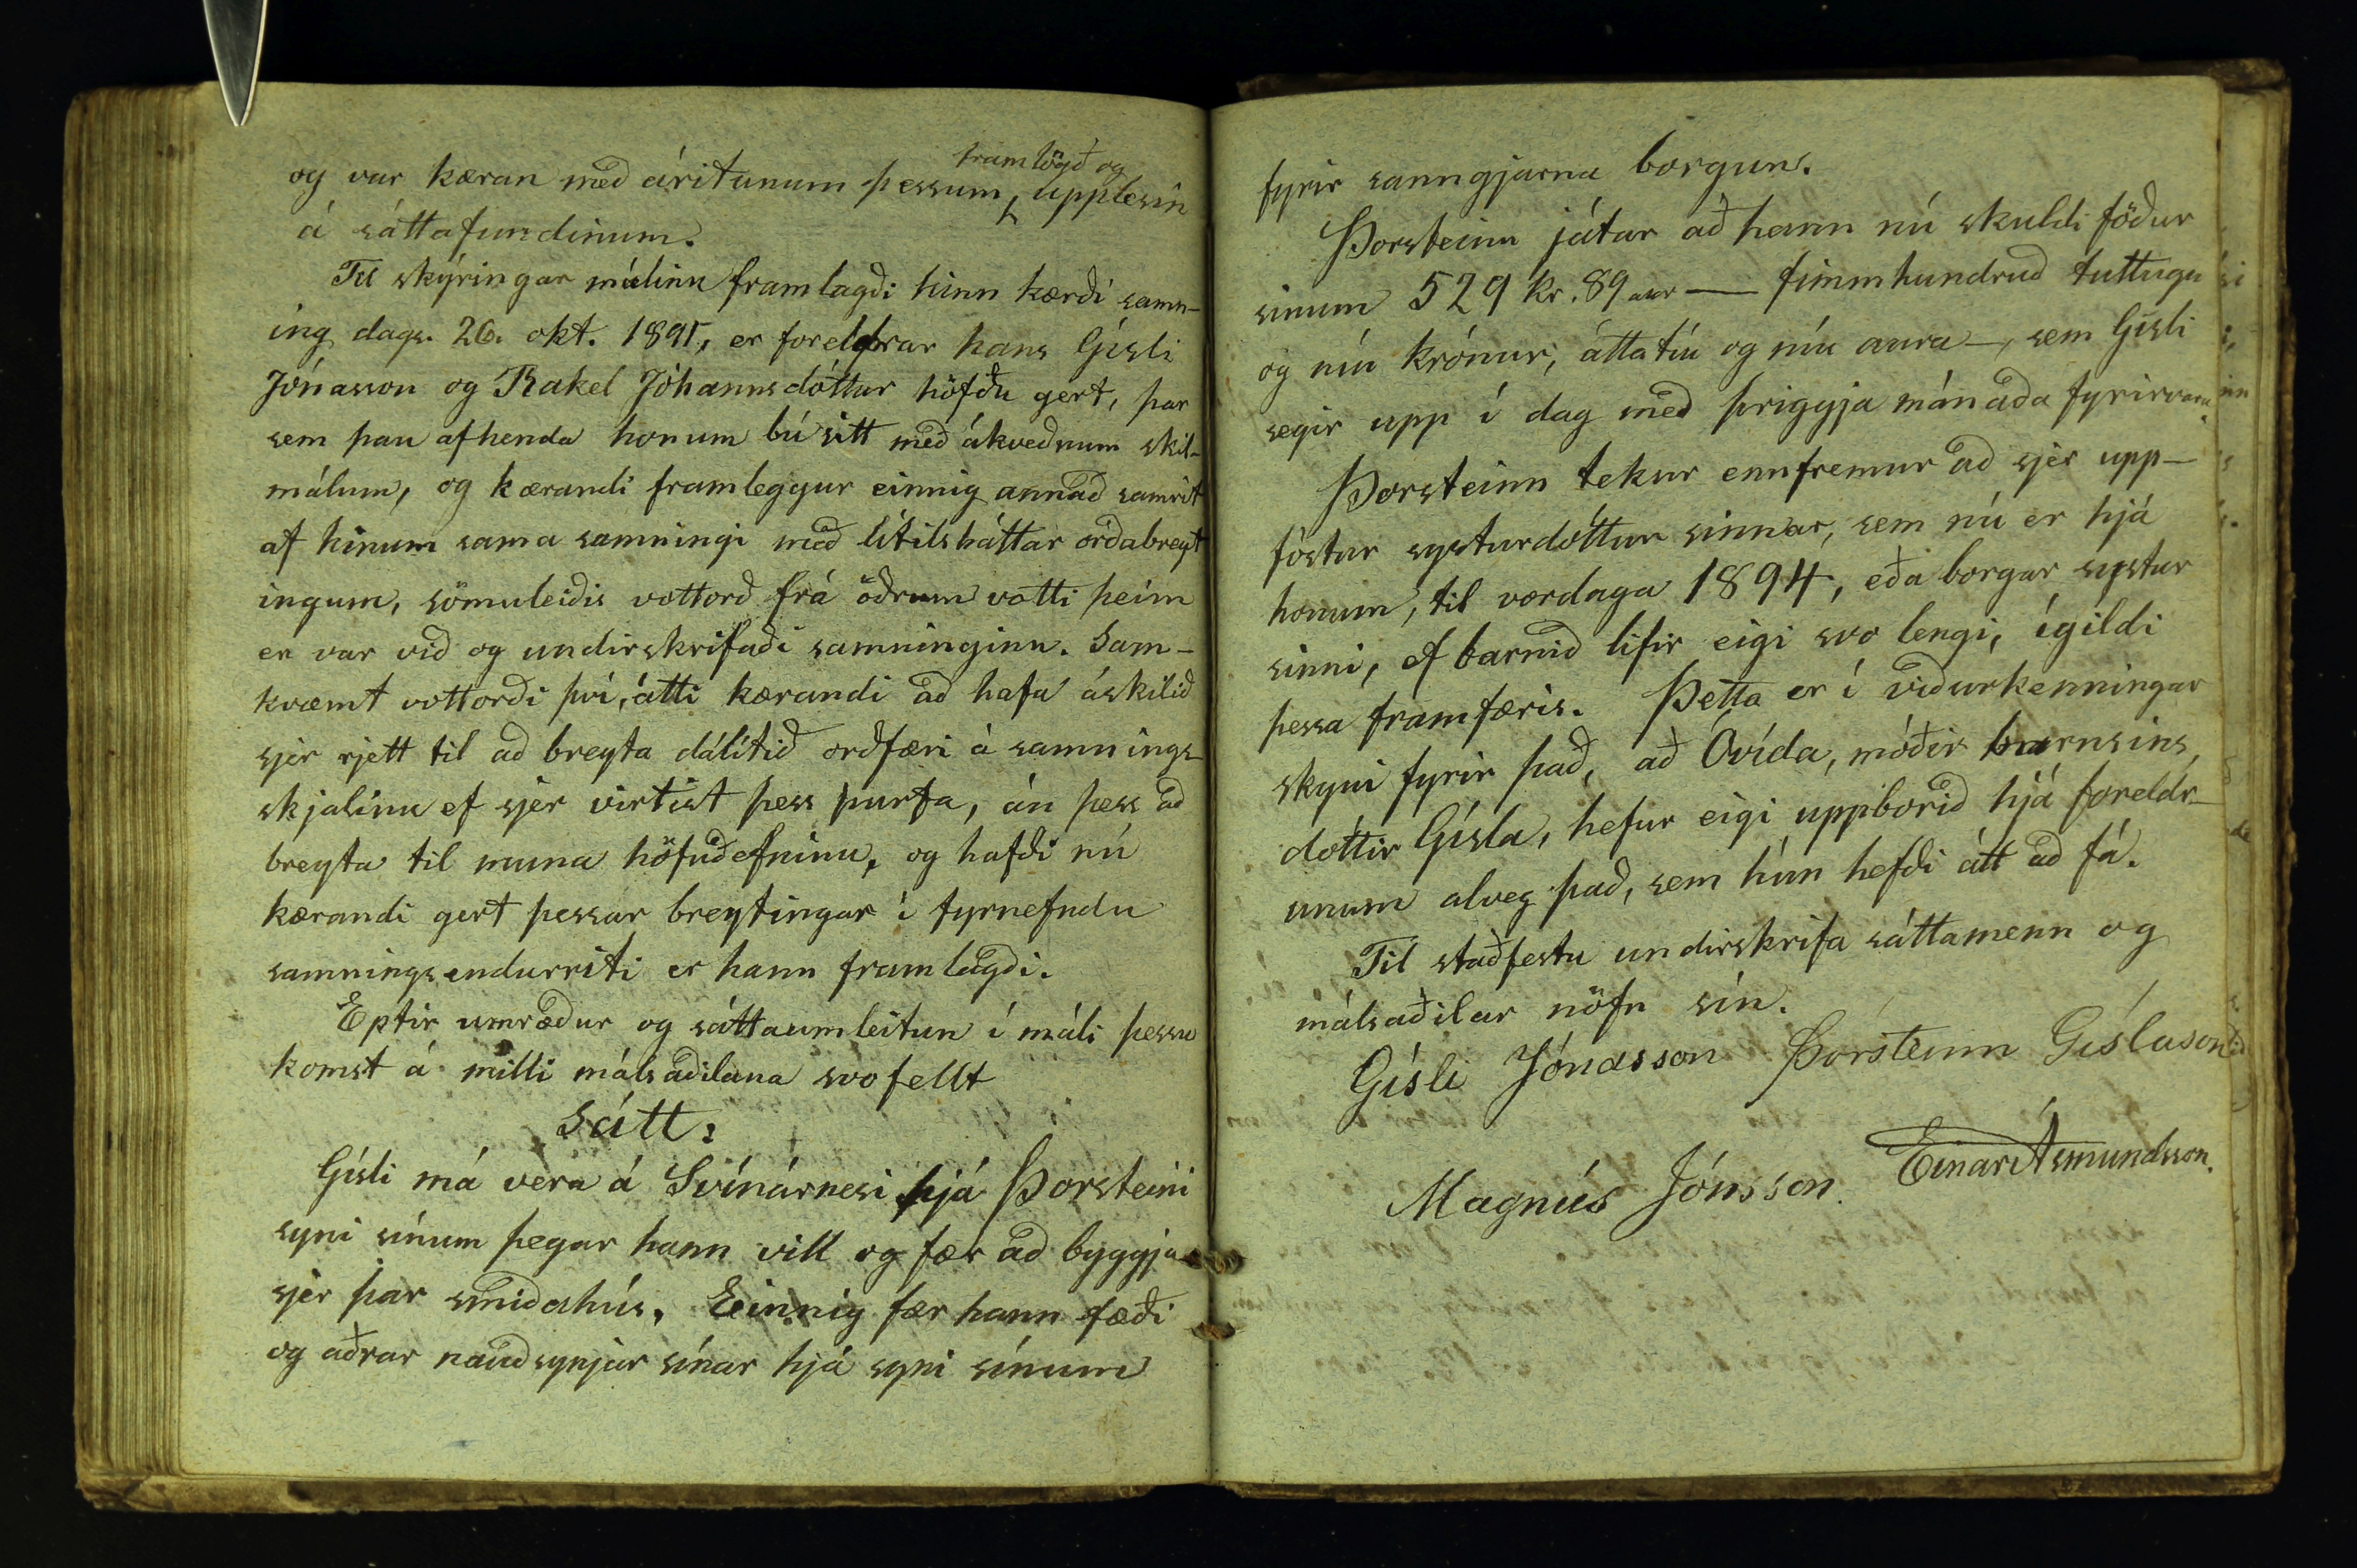 og var kæran með áritunum þessum, framlögð og upplesin
á sáttafundinum.
Til skýringar málinu framlagði hinn kærði samn-
ing dags. 26. okt. 1891, er foreldrar hans Gísli
Jónasson og Rakel Jóhannsdóttur höfðu gert, þar
sem þau afhenda honum bú sitt með ákveðnum skil-
málum, og kærandi framleggur einnig annað samrit
af hinum sama samningi með lítilsháttar orðabreyt
ingum, sömuleiðis vottorð frá öðrum votti þeim
er var við og undirskrifaði samninginn. Sam-
kvæmt vottorði því, átti kærandi að hafa áskilið
sjer rjett til að breyta dálítið orðfæri á samnings-
skjalinu ef sjer virtist þess þurfa, án þess að
breyta til muna höfuðefninu, og hafði nú
kærandi gert þessar breytingar í fyrnefndu
samningsendurriti er hann framlagði.
Eptir umræður og sáttaumleitun í máli þessu
komst á milli málsaðilana svofellt
Sátt:
Gísli má vera á Svínárnesi hjá Þorsteini
syni sínum þegar hann vill og fær að byggja
sjer þar smiðahús. Einnig fær hann fæði
og aðrar nauðsynjar sínar hjá syni sínum
fyrir sanngjarna borgun.
Þorsteinn játar að hann nú skuldi föður
sínum 529 kr. 89 aur — fimmhundruð tuttugu
og níu krónur, áttatíu og níu aura —, sem Gísli
segir upp í dag með þriggja mánaða fyrirvara.
Þorsteinn tekur ennfremur að sjer upp-
fóstur systurdóttur sinnar, sem nú er hjá
honum, til vordaga 1894, eða borgar systur
sinni, ef barnið lifir eigi svo lengi, ígildi
þessa framfæris. Þetta er í viðurkenningar
skyni fyrir það, að Óvída, móðir barnsins,
dóttir Gísla, hefur eigi uppborið hjá foreldr-
unum alveg það, sem hún hefði átt að fá.
Til staðfestu undirskrifa sáttamenn og
málsaðilar nöfn sín.
Gísli Jónasson Þorsteinn Gíslason
Magnús Jónsson. Einar Ásmundsson.